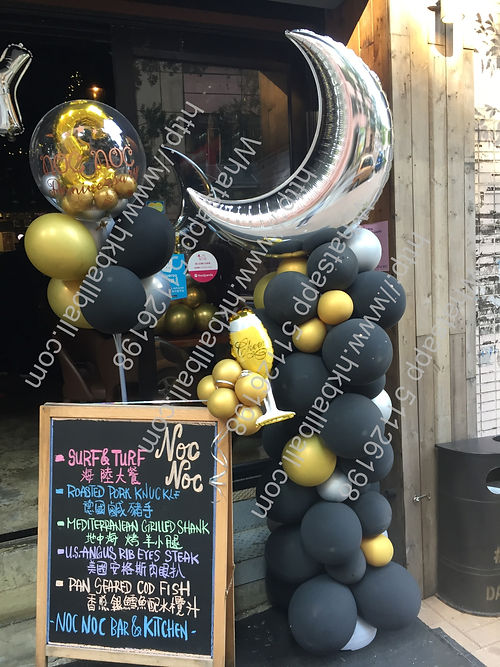 Noc
Noc
- SURF & TURF
海陸大餐
- ROASTED PORK KNUCKLE
德國鹹豬手
- MEDITERRANEAN GRILLED SHANK
地中海烤羊小腿
- U.S. ANGUS RIB EYES STEAK
美國安格斯肉眼扒
- PAN SEARED COD FISH
香煎銀鱈魚配水欖汁
- NOC NOC BAR & KITCHEN -
Cheers
foodpanda
Whatsapp 51126198
http://www.hkballball.com/
Whatsapp 51126198
http://www.hkballball.com/
Whatsapp 51126198
http://www.hkballball.com/